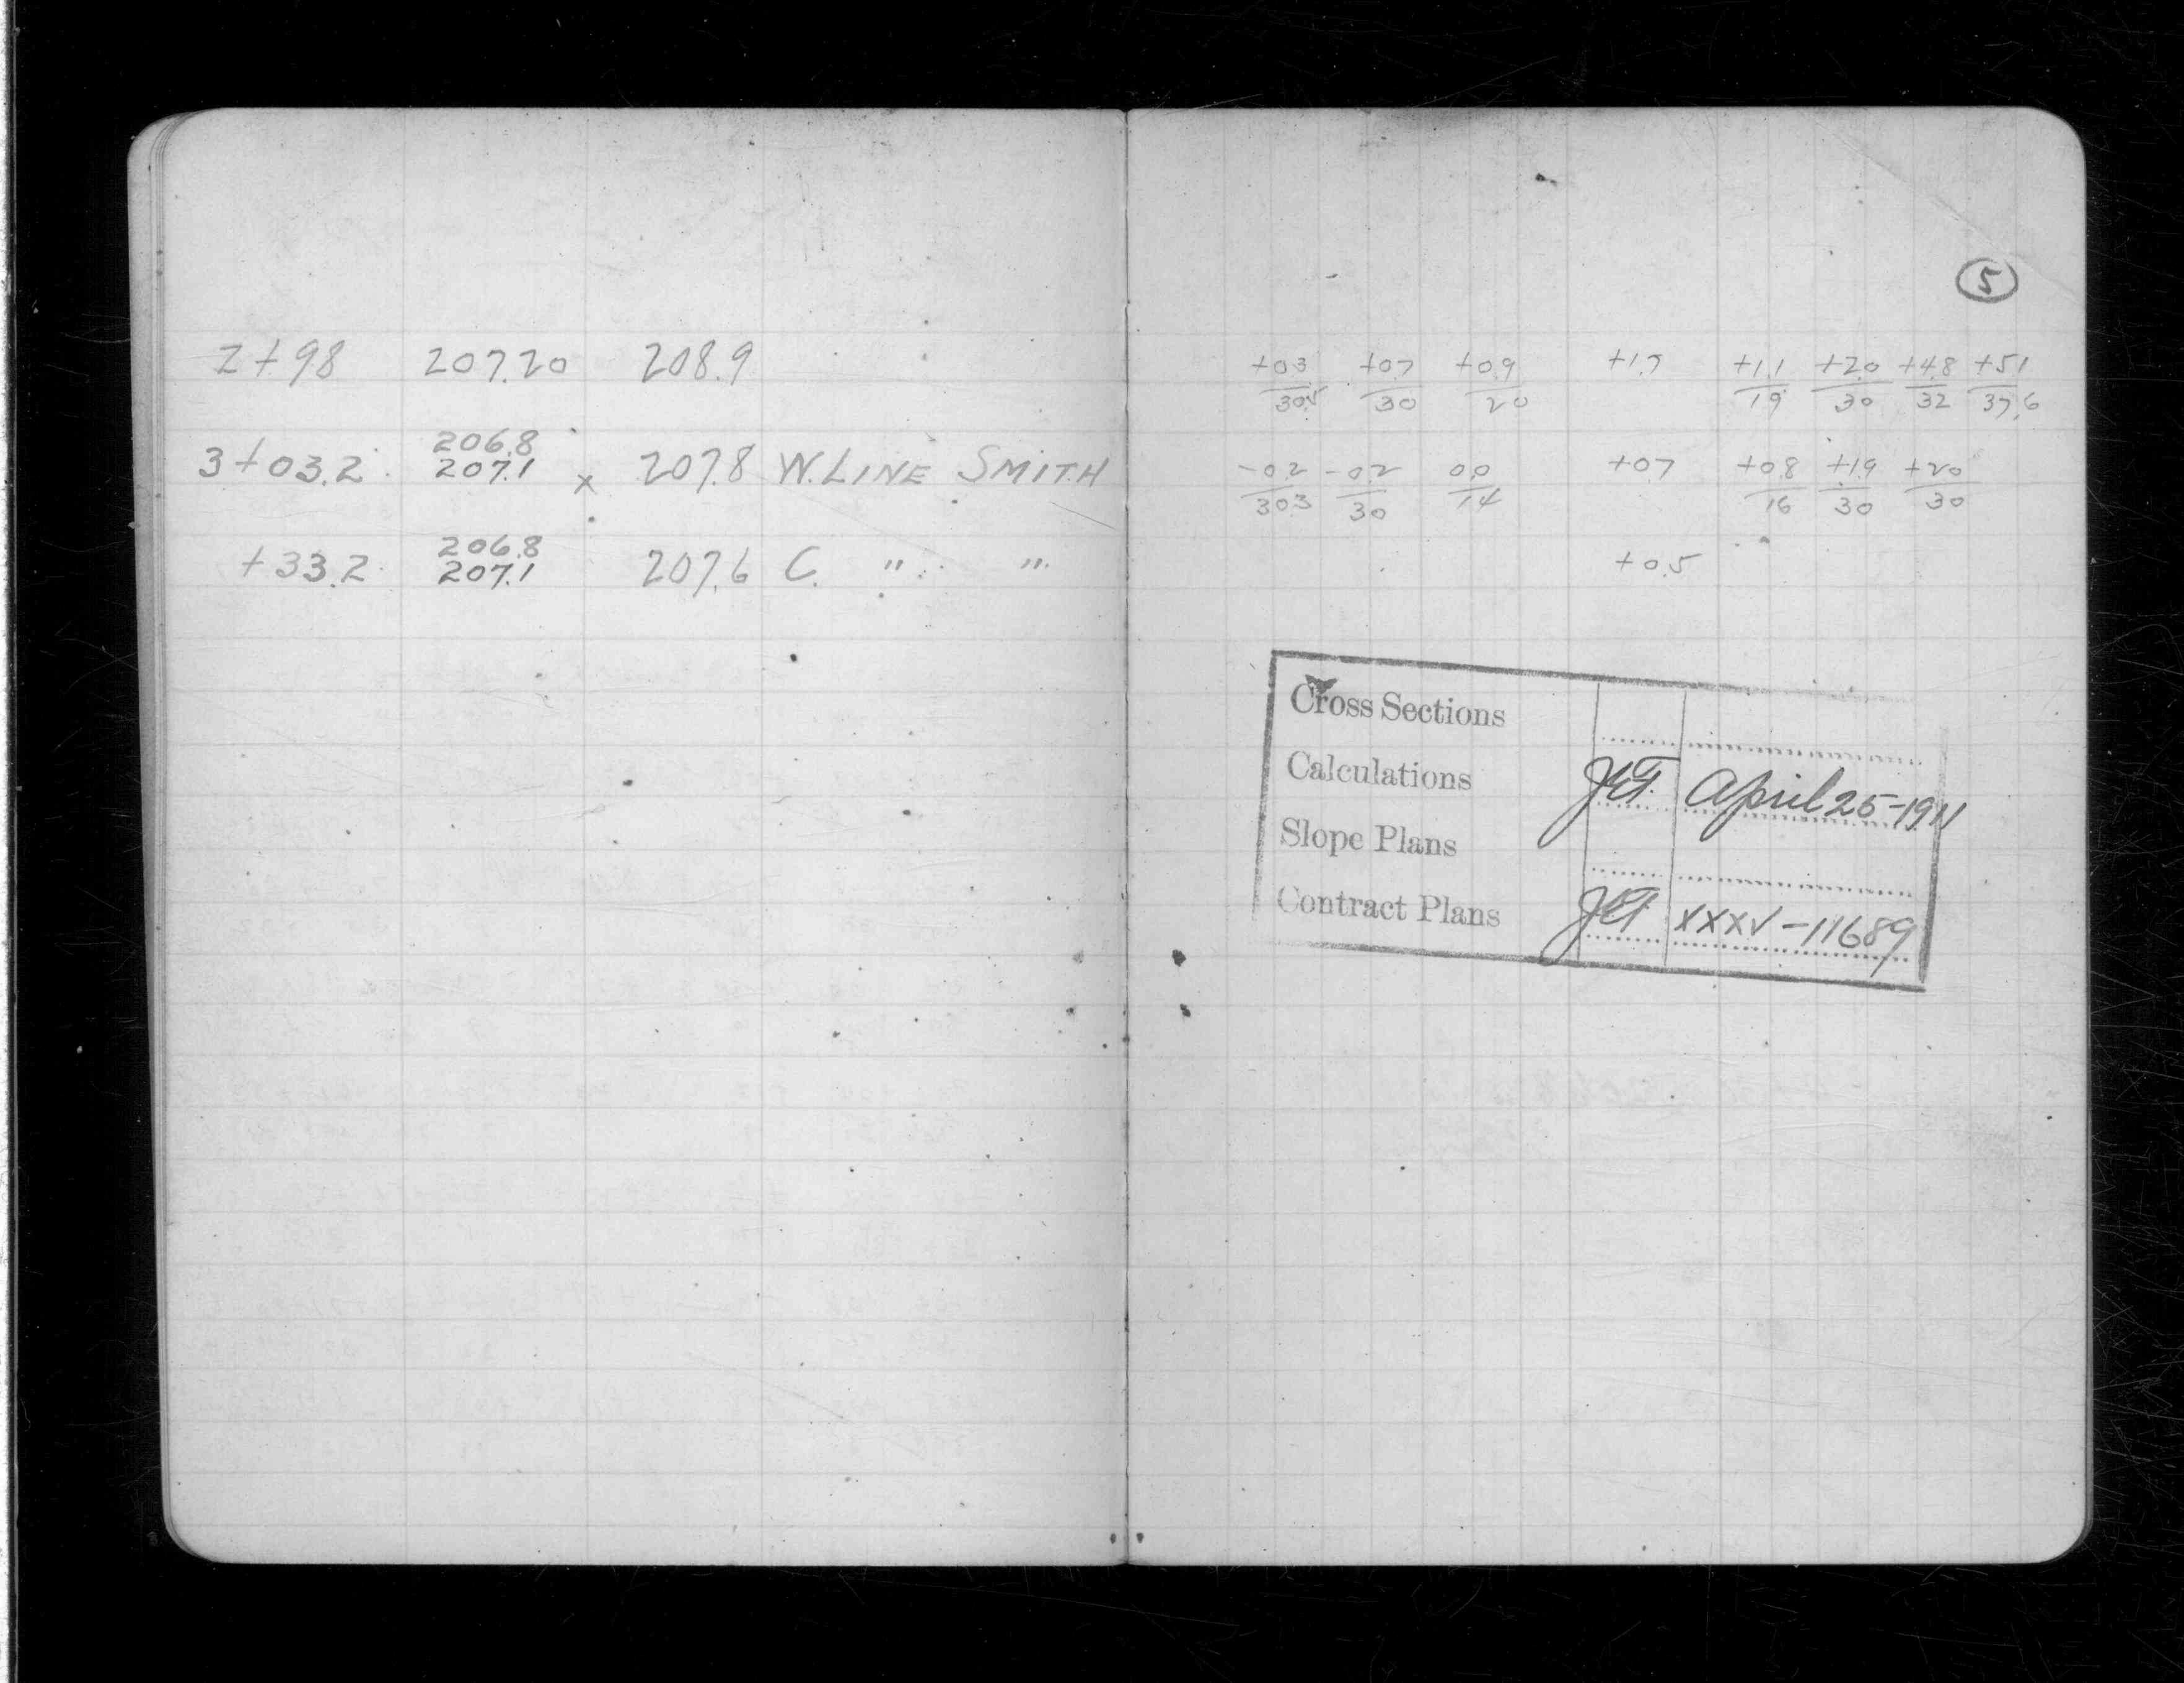 5
2+98 207.20 208.9
206.8
3+03.2 207.1 x 207.8 W. LINE SMITH
206.8
+33.2 207.1 207.6 C. " "
+0.3 +0.7 +0.9 +1.7 +1.1 +2.0 +4.8 +5.1
30 20 19 30 32 37.6
-0.2 -0.2 0.0 +0.7 +0.8 +1.9 +2.0
30.3 30 14 16 30 30
+0.5
Cross Sections
Calculations JET. April 25-1911
Slope Plans
Contract Plans JET XXXV-11689